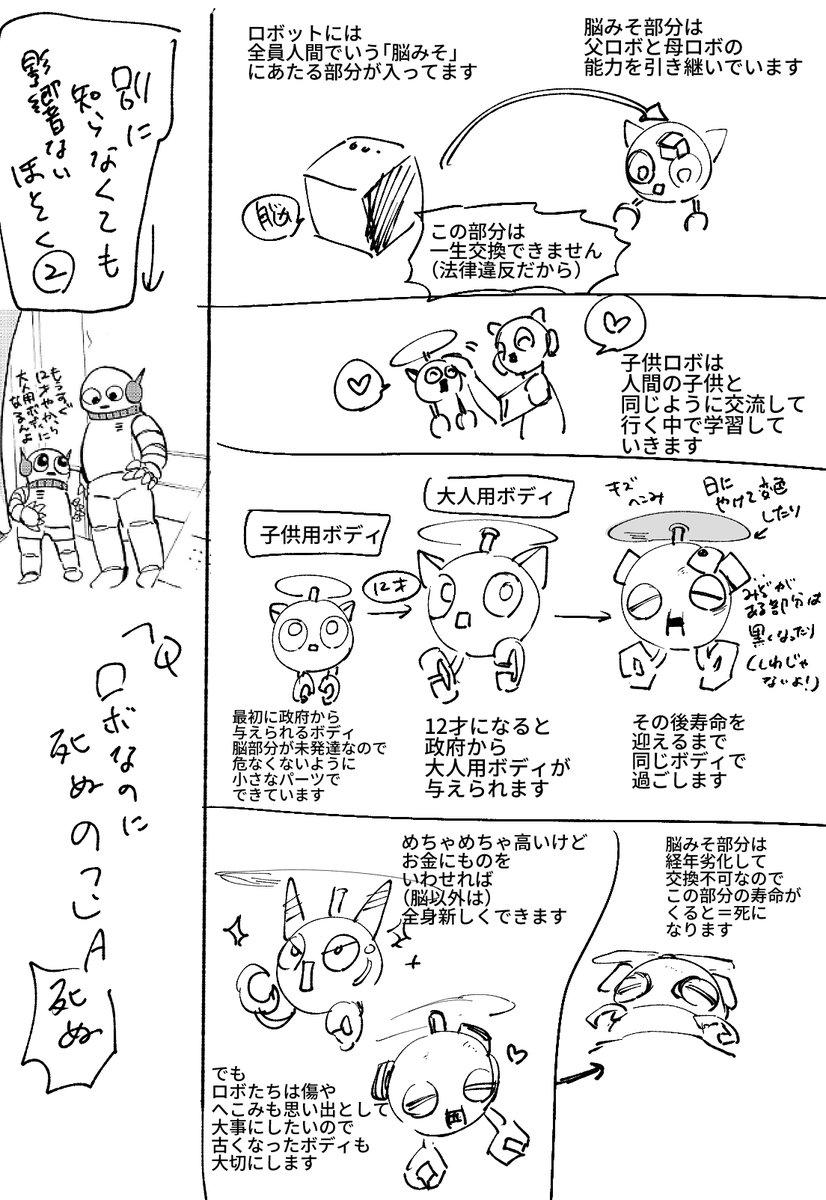 別に
知らなくても
影響ない
ほそく
②
もうすぐ
12才やから
大人用ボディに
なるんよ
Q
ロボなのに
死ぬの?
A
死ぬ
ロボットには
全員人間でいう「脳みそ」
にあたる部分が入ってます
脳みそ部分は
父ロボと母ロボの
能力を引き継いでいます
脳
この部分は
一生交換できません
（法律違反だから）
子供ロボは
人間の子供と
同じように交流して
行く中で学習して
いきます
子供用ボディ
12才
大人用ボディ
キズ
へこみ
日に
やけて変色
したり
みぞが
ある部分は
黒くなったり
(しわじゃ
ないよ!)
最初に政府から
与えられるボディ
脳部分が未発達なので
危なくないように
小さなパーツで
できています
12才になると
政府から
大人用ボディが
与えられます
その後寿命を
迎えるまで
同じボディで
過ごします
めちゃめちゃ高いけど
お金にものを
いわせれば
（脳以外は）
全身新しくできます
でも
ロボたちは傷や
へこみも思い出として
大事にしたいので
古くなったボディも
大切にします
脳みそ部分は
経年劣化して
交換不可なので
この部分の寿命が
くると＝死に
なります